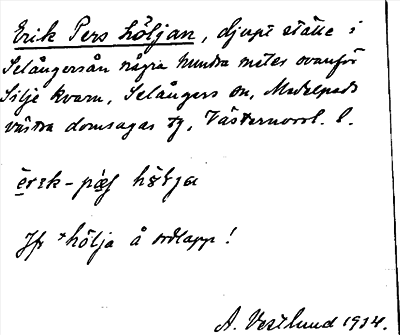 Erik Pers höljan, djupt ställe i
Selångersån några hundra meter ovanför
Silje kvarn, Selångers sn, Medelpads
västra domsagas tg, Västernorrl. l.
Jfr *hölja å ordlapp!
A. Vestlund 1934.